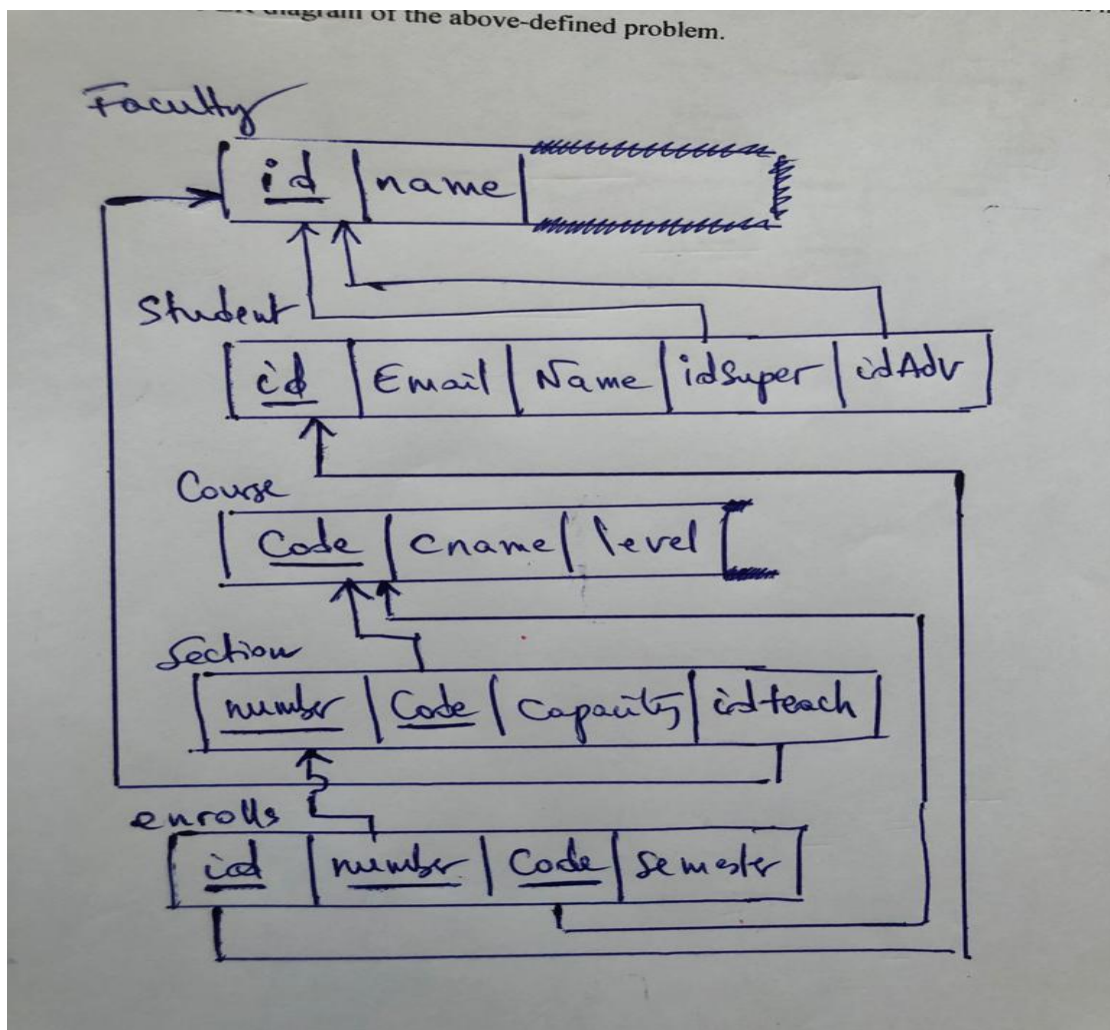 diagram of the above-defined problem.
Faculty
id name
Student
id Email Name idSuper idAdv
Course
Code Cname level
Section
number Code Capacity idteach
enrolls
id number Code Semester